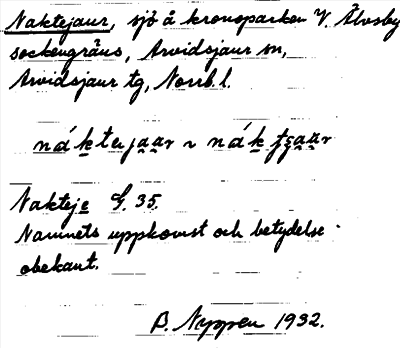 Naktejaur, sjö å kronoparken V. Älvsby
sockengräns, Arvidsjaur sn,
Arvidsjaur tg, Norrb. l.
Nakteje G. 35.
Namnets uppkomst och betydelse
obekant.
B. Nyppen 1932.